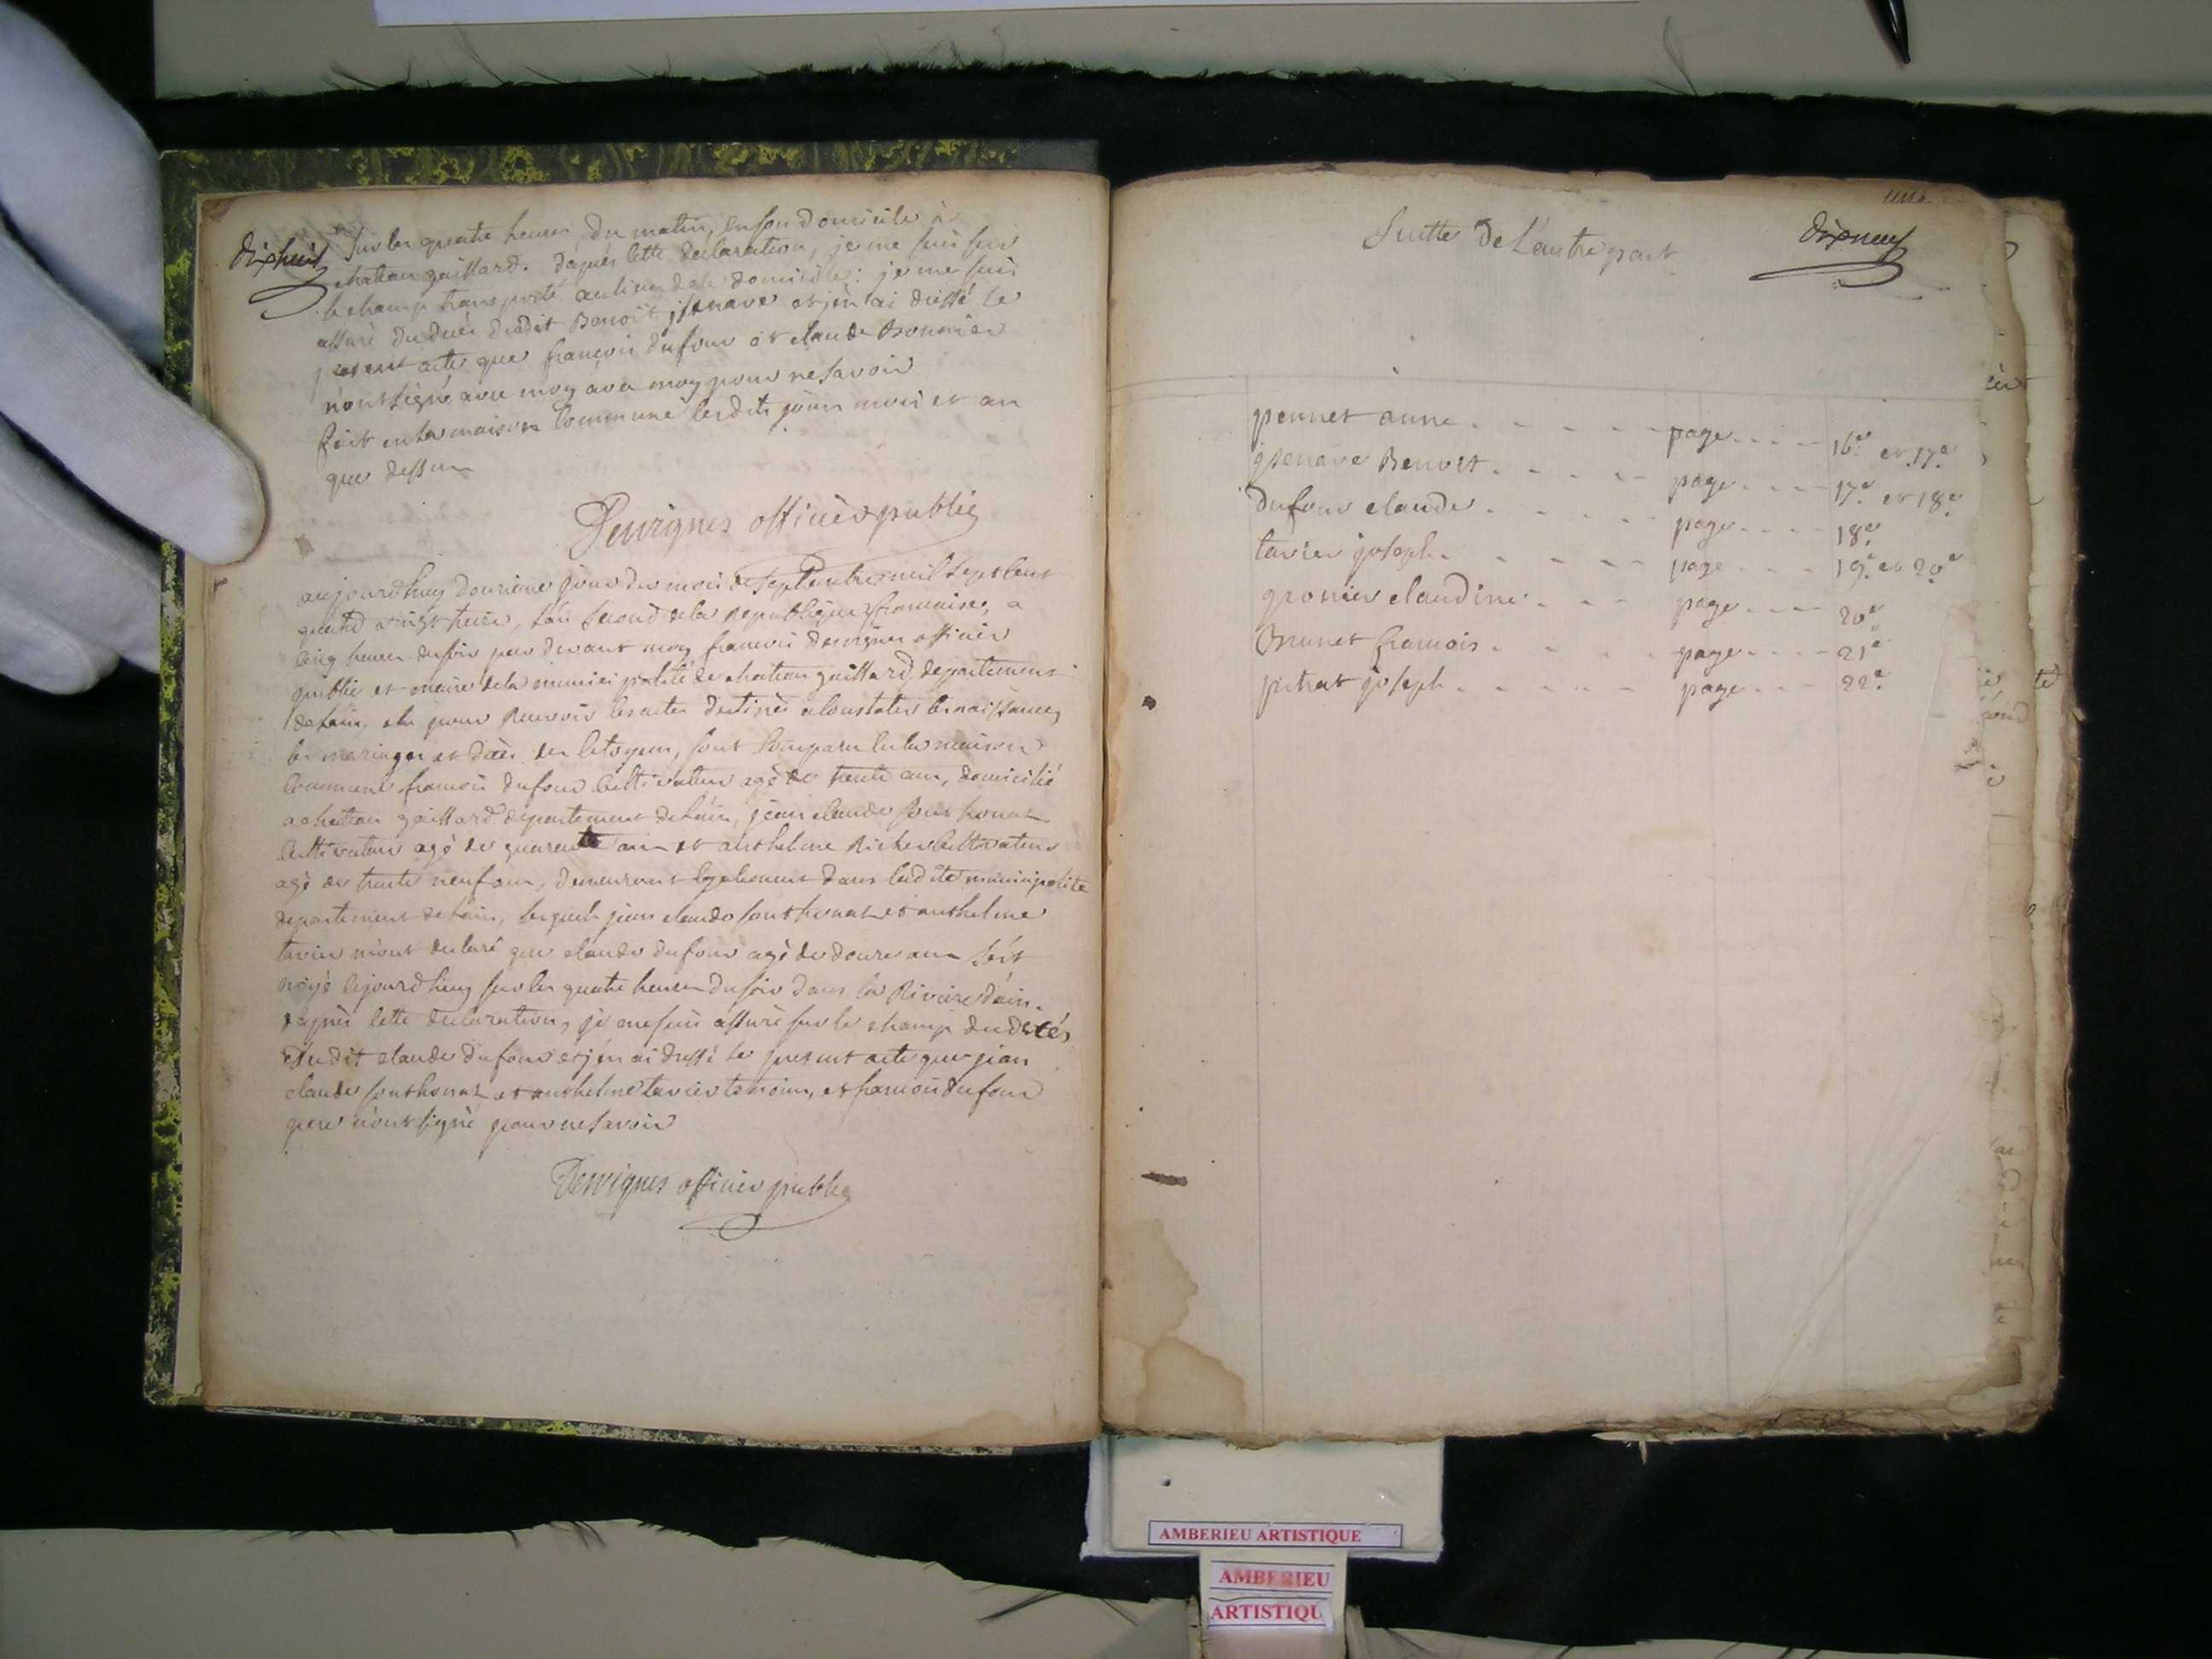 dixhuit
Sur les quatre heures du matin, en son domicile à
chateau gaillard. d'après cette declaration, je me suis sur
le champ transporté au lieu de ce domicile: je me suis
assuré du decès dudit Benoit jsenave et j'en ai dressé le
present acte que françois dufour et claude Bonnier
n'ont signé avec moy avec moy pour ne savoir
fait en la maison Commune lesdits jour mois et an
que dessus
Desvignes officièr public
aujourdhuy douzieme jour du mois de septembre mil sept cent
quatre vingt treize, l'an second de la republique francaise, a
cinq heures du soir par devant moy francois desvignes officier
public et maire de la municipalité de chateau gaillard, departement
de l'ain, elu pour recevoir les actes destinés a constater les naissances,
les mariages et decès des citoyens, sont comparu en la maison
Commune francois dufour cultivateur agè de trente ans, domicilié
a chateau gaillard departement de l'ain, jean claude southonat
cultivateur agè de quarente ans et anthelme cultivateur
agè de trente neuf ans, demeurant egalement dans ladite municipalité
departement de l'ain, lesquels jean claude southonat et anthelme
tavier m'ont declaré que claude dufour agè de douze ans s'est
noyé cejourdhuy sur les quatre heures du soir dans la Riviere d'ain.
d'après cette declaration, je me suis assuré sur le champ du decés
dudit claude dufour et j'en ai dressé le present acte que jean
claude southonat et anthelme tavier temoins, et francois dufour
pere n'ont signé pour ne savoir
Desvignes officier public
Suitte de L'autre part
dixneuf
pennet anne - - - - - page - - - - 16e et 17e
jsenave Benoit - - - - page - - - - 17e et 18e
dufour claude - - - - - page - - - - 18e
tavier joseph - - - - - page - - - - 19e et 20e
gronier claudine - - - page - - - - 20e
Brunet francois - - - - page - - - - 21e
pichat joseph - - - - - page - - - - 22e
AMBERIEU ARTISTIQUE
AMBERIEU
ARTISTIQU